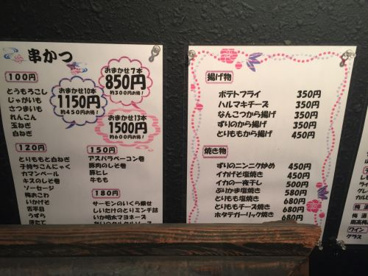 串かつ
100円
とうもろこし
じゃがいも
さつまいも
れんこん
玉ねぎ
白ねぎ
120円
とりももと白ねぎ
子持ちこんにゃく
カマンベール
キスのしそ巻
ソーセージ
いかげそ
うずら
おまかせ7本
850円
おまかせ10本
1150円
おまかせ13本
1500円
150円
アスパラベーコン巻
豚肉のしそ巻
豚ヒレ
牛もも
180円
サーモンのいくら乗せ
しいたけのとりミンチ詰
いか明太マヨネーズ
揚げ物
ポテトフライ 350円
ハルマキチーズ 350円
なんこつから揚げ 350円
ずりのから揚げ 350円
とりももから揚げ 450円
焼き物
ずりのニンニク炒め 450円
イカげそ塩焼き 450円
イカの一夜干し 500円
ぶりかま塩焼き 580円
とりもも塩焼き 680円
とりももチーズ焼き 680円
ホタテガーリック焼き 680円
ワイン
グラス